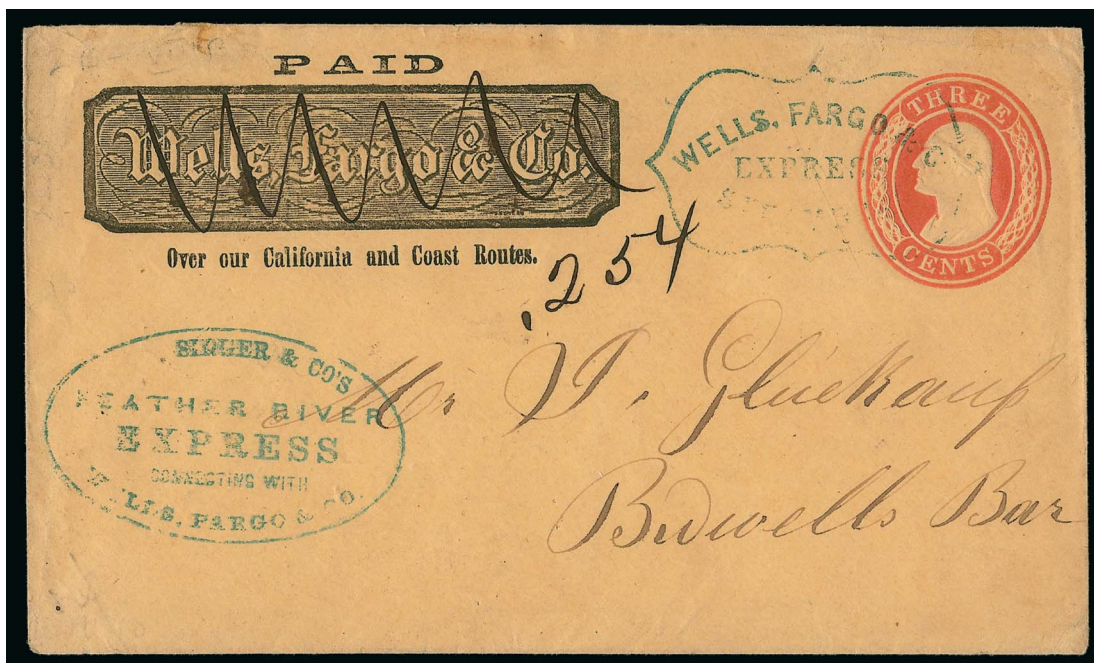 PAID
Wells, Fargo & Co.
Over our California and Coast Routes.
WELLS, FARGO & CO.
EXPRESS
THREE
CENTS
.254
SINGER & CO'S
FEATHER RIVER
EXPRESS
CONNECTING WITH
WELLS, FARGO & CO.
Mr. J. Gluckauf
Bidwells Bar